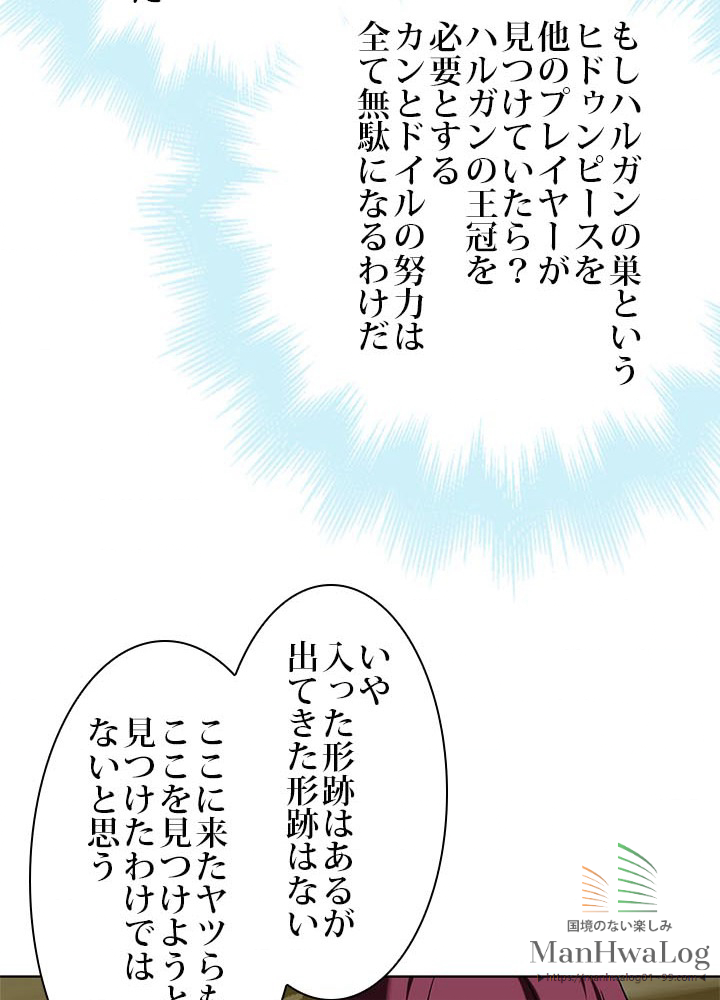 もしハルガンの巣という
ヒドゥンピースを
他のプレイヤーが
見つけていたら?
ハルガンの王冠を
必要とする
カンとドイルの努力は
全て無駄になるわけだ
いや
入った形跡はあるが
出てきた形跡はない
ここに来たヤツらも
ここを見つけようと
見つけたわけでは
ないと思う
国境のない楽しみ
ManHwaLog